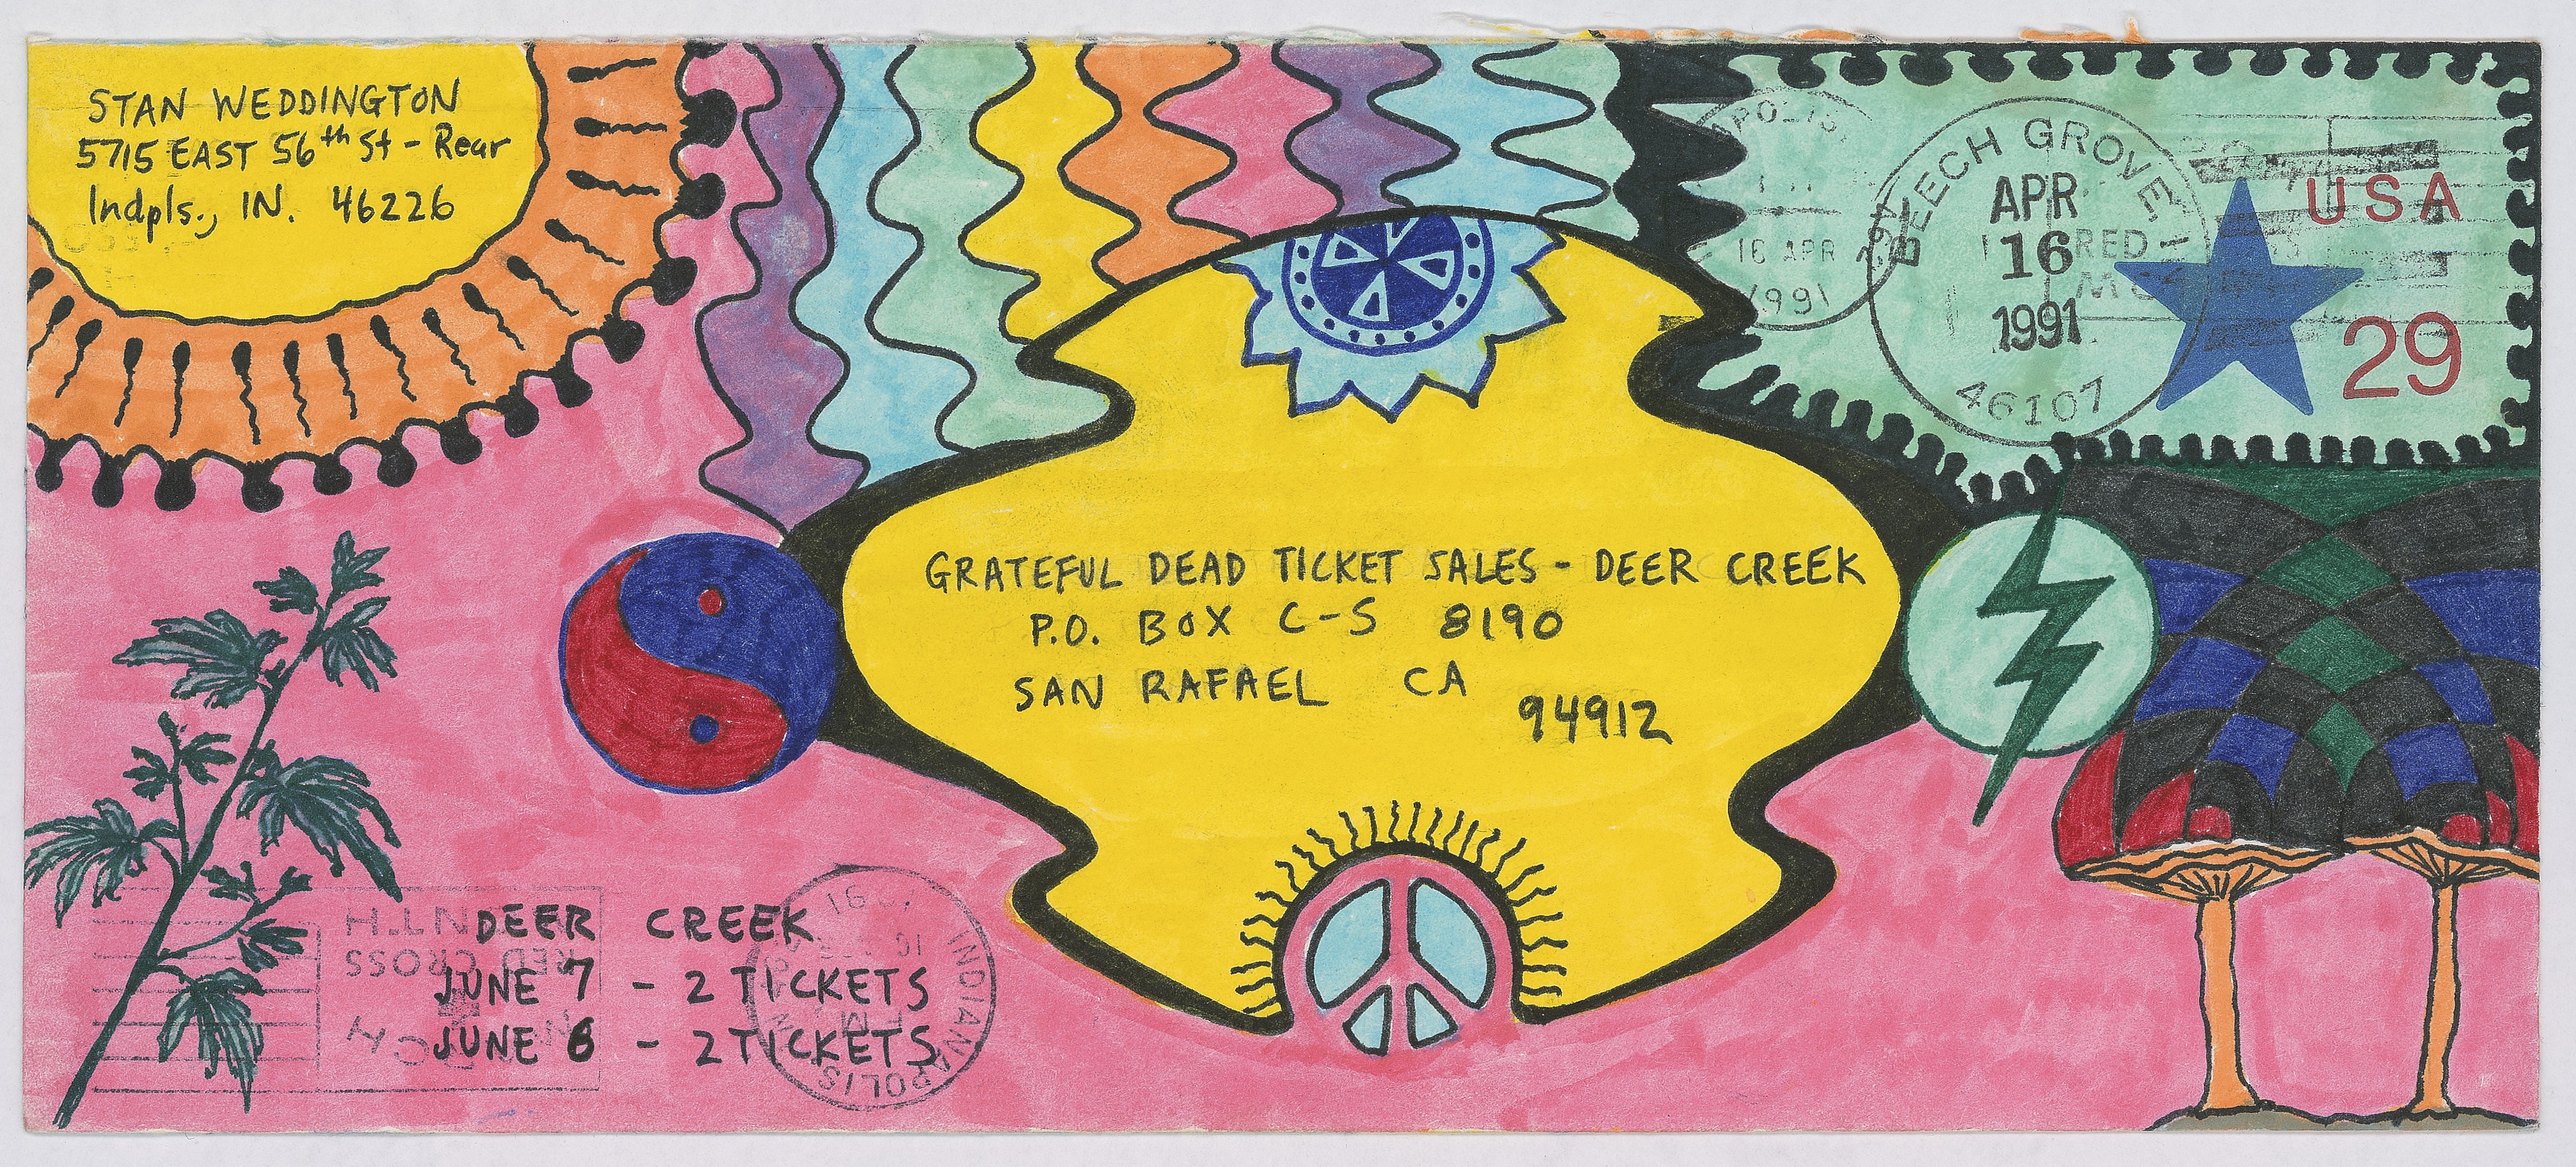 STAN WEDDINGTON
5715 EAST 56th St - Rear
Indpls., IN. 46226
APOLIS,
16 APR
1991
BEECH GROVE
APR
16
1991
46107
RED
USA
29
GRATEFUL DEAD TICKET SALES - DEER CREEK
P.O. BOX C-S 8190
SAN RAFAEL CA
94912
DEER CREEK
JUNE 7 - 2 TICKETS
JUNE 8 - 2 TICKETS
RED CROSS
INDIANAPOLIS